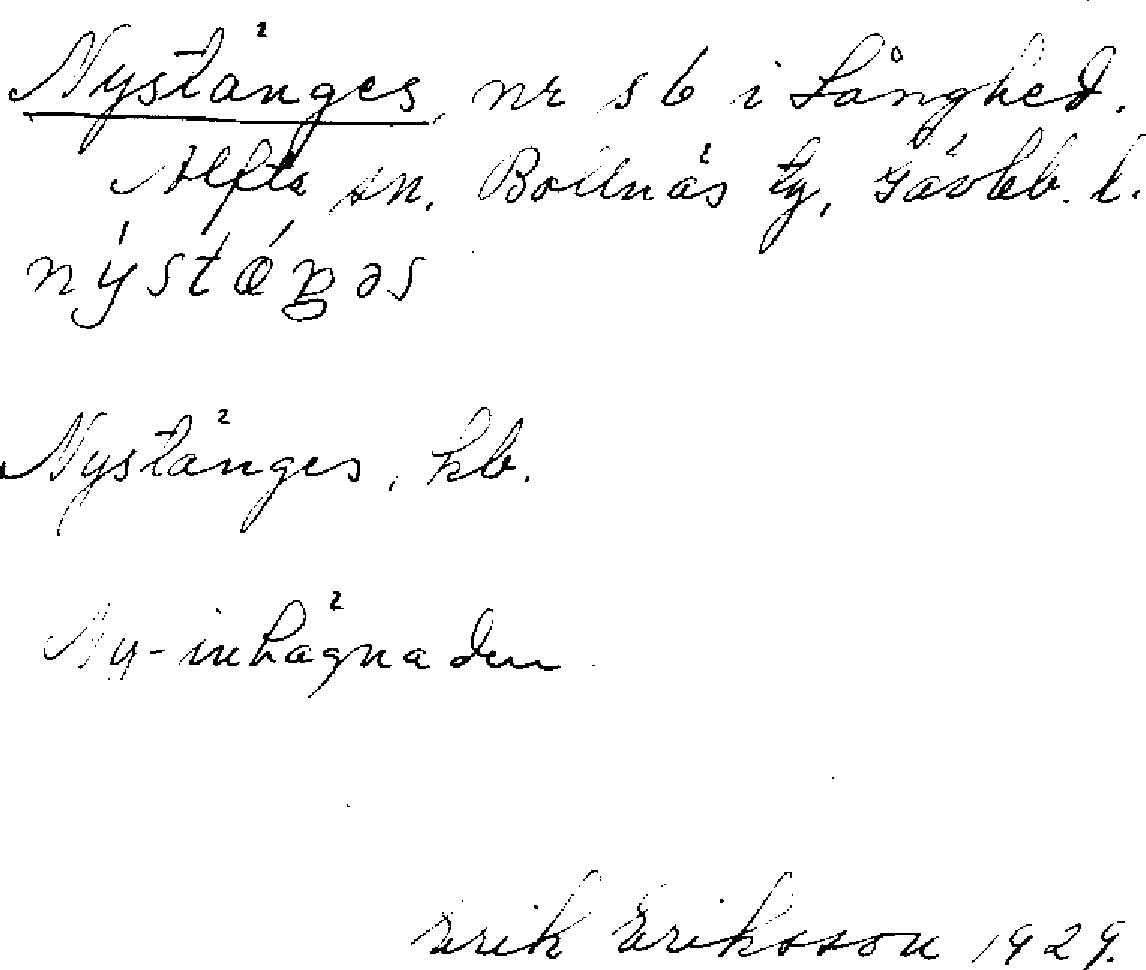 Nystänges, nr 56 i Långhed.
Alfta sn. Bollnäs tg, Gävleb. l.
Nystänges, kb.
Ny-inhägnaden
Erik Eriksson 1929.